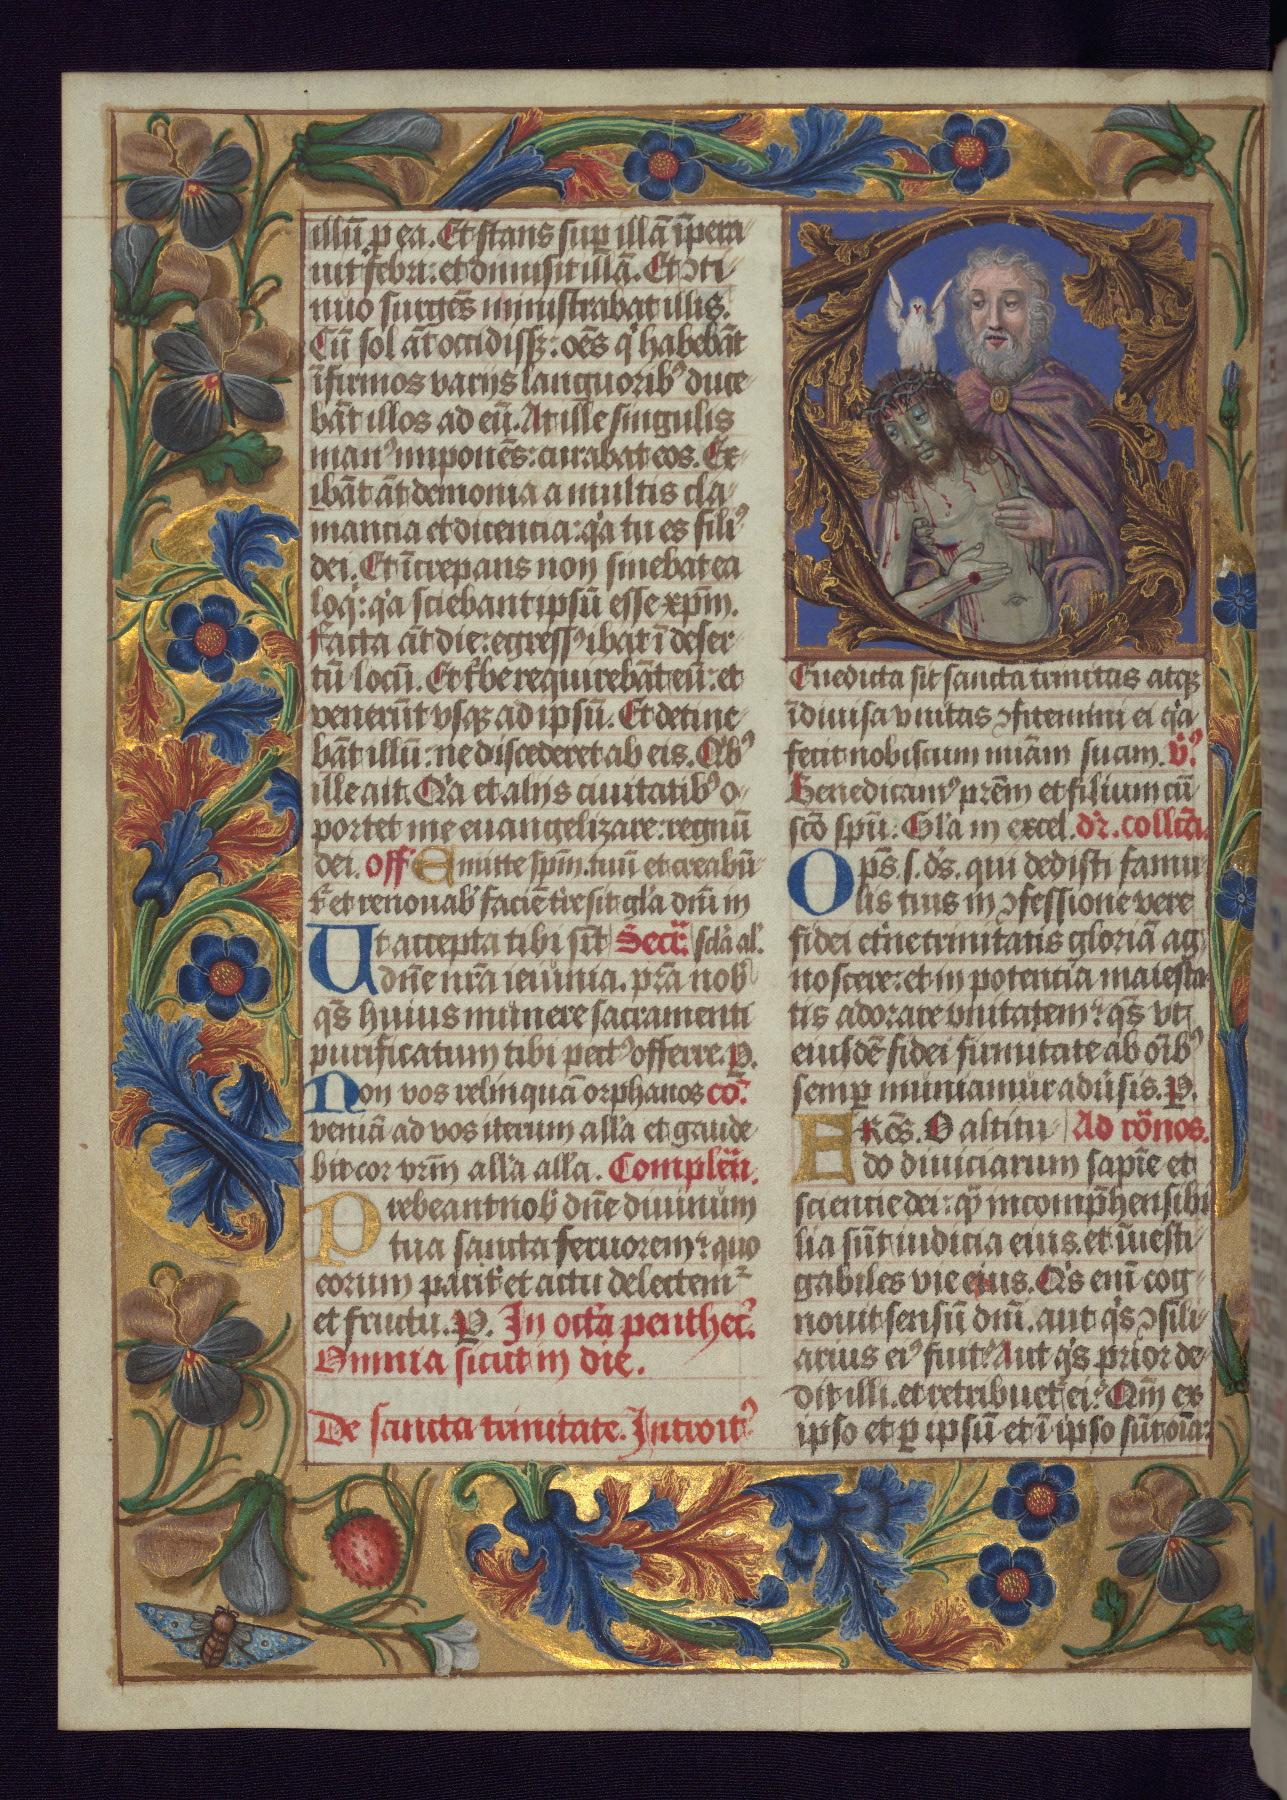 illū p ea. Et stans sup illā īpera
uit febri: et dimisit illā. Et ꝯti
nuo surgēs ministrabat illis.
Cū sol āt occidissꝫ: oēs q habebāt
īfirmos variis languoribꝰ duce
bāt illos ad eū. At ille singulis
manꝰ imponēs: curabat eos. Ex
ibāt āt demonia a multis cla
mantia et dicencia: qa tu es filiꝰ
dei. Et īcrepans non sinebat ea
loqi: qa sciebant ipsū esse xpm̄.
Facta āt die: egressꝰ ibat ī deser
tū locū. Et tbe requirebāt eū: et
venerūt vsqꝫ ad ipsū. Et detine
bāt illū: ne discederet ab eis. Qibꝰ
ille ait. Qa et aliis ciuitatibꝰ o
portet me euangelizare: regnū
dei. Off Emitte spm̄ tuū et creabū
t et renouabˀ faciē tre sit gla dn̄i in
Ut accepta tibi sīt Secr̄. scla al.
dn̄e nr̄a ieiunia. pr̄a nobˀ
qs̄ huius munere sacramenti
purificatum tibi pectꝰ offerre. P.
Non vos relinquā orphanos cō.
veniā ad vos iterum alla et gaude
bit cor vrm̄ alla alla. Complen̄.
Prebeant nobˀ dn̄e diuinum
tua sancta feruorem: quo
eorum parit et actu delectemꝛ
et fructu. P. In octa penthec.
Omnia sicut in die.
De sancta trinitate. Introitꝰ
Benedicta sit sancta trinitas atqꝫ
īdiuisa vnitas ꝯfitemini ei qa
fecit nobiscum miam suam. V̄ꝰ
Benedicamꝰ prēm et filium cū
scō spū. Gla in excel. dr̄. collcā.
Ops̄. s. ds̄. qui dedisti famu
lis tuis in ꝯfessione vere
fidei etne trinitatis gloriā ag
noscere: et in potencia maiesta
tis adorare vnitatem: qs̄ vt
eiusdē fidei firmitate ab oībꝰ
semp muniamur aduersis. P.
FRēs. O altitu Ad rōnos.
do diuiciarum sapīe et
scientie dei: qm̄ incomprehensibi
lia sūt iudicia eius. et īuesti
gabiles vie eius. Qis enī cog
nouit sensū dn̄i. aut qis ꝯsili
arius eiꝰ fuit? Aut qis prior de
dit illi. et retribuet ei? Qm̄ ex
ipso et p ipsū et ī ipso sūt oīa: